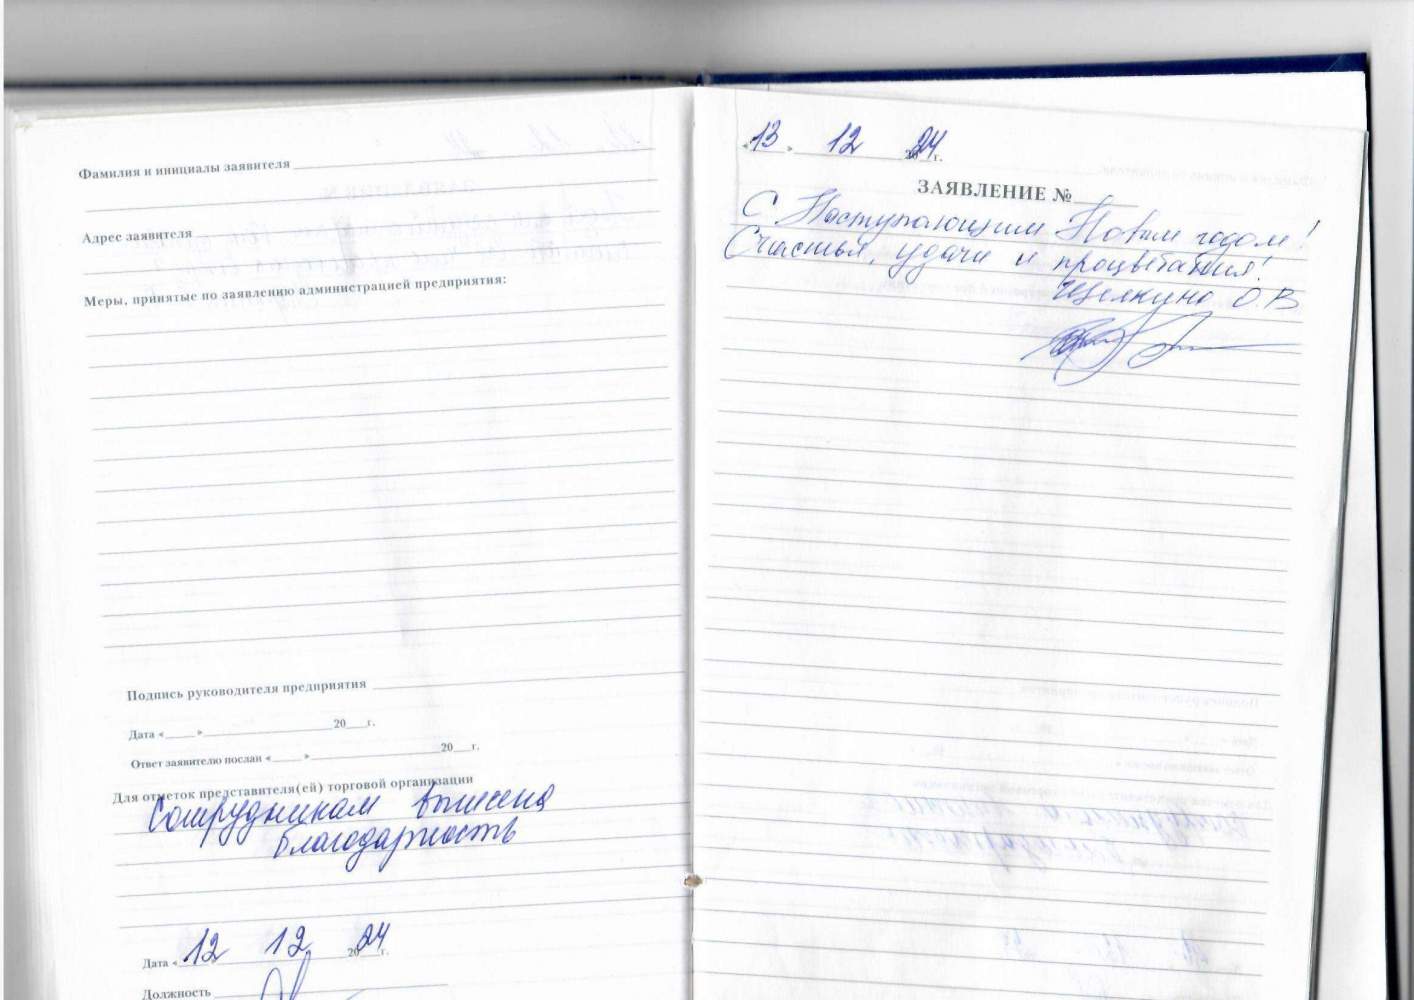 Фамилия и инициалы заявителя
Адрес заявителя
Меры, принятые по заявлению администрацией предприятия:
Подпись руководителя предприятия
Дата « » 20 г.
Ответ заявителю послан « » 20 г.
Для отметок представителя(ей) торговой организации
Сотрудникам вынесена
благодарность
Дата « 12 12 2024 г.
Должность
« 13 » 12 2024 г.
ЗАЯВЛЕНИЕ №
С Наступающим Новым годом!
Счастья, удачи и процветания!
Щелкина О.В